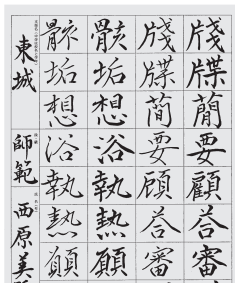 牋牒簡要顧答審
牋牒簡要顧答審
骸垢想浴執熱願
骸垢想浴執熱願
東城 師範 西原美